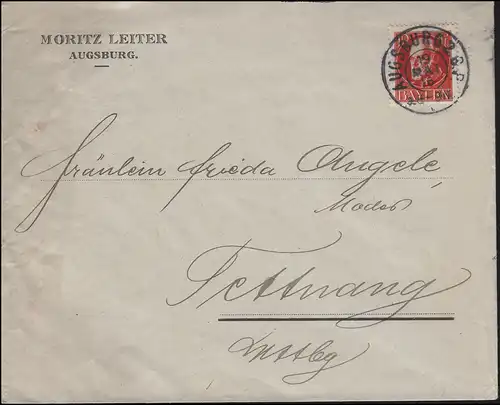 MORITZ LEITER
AUGSBURG.
AUGSBURG 2 B.P.
BAYERN
Fräulein Frieda Angele
Modes
Tettnang
Württbg